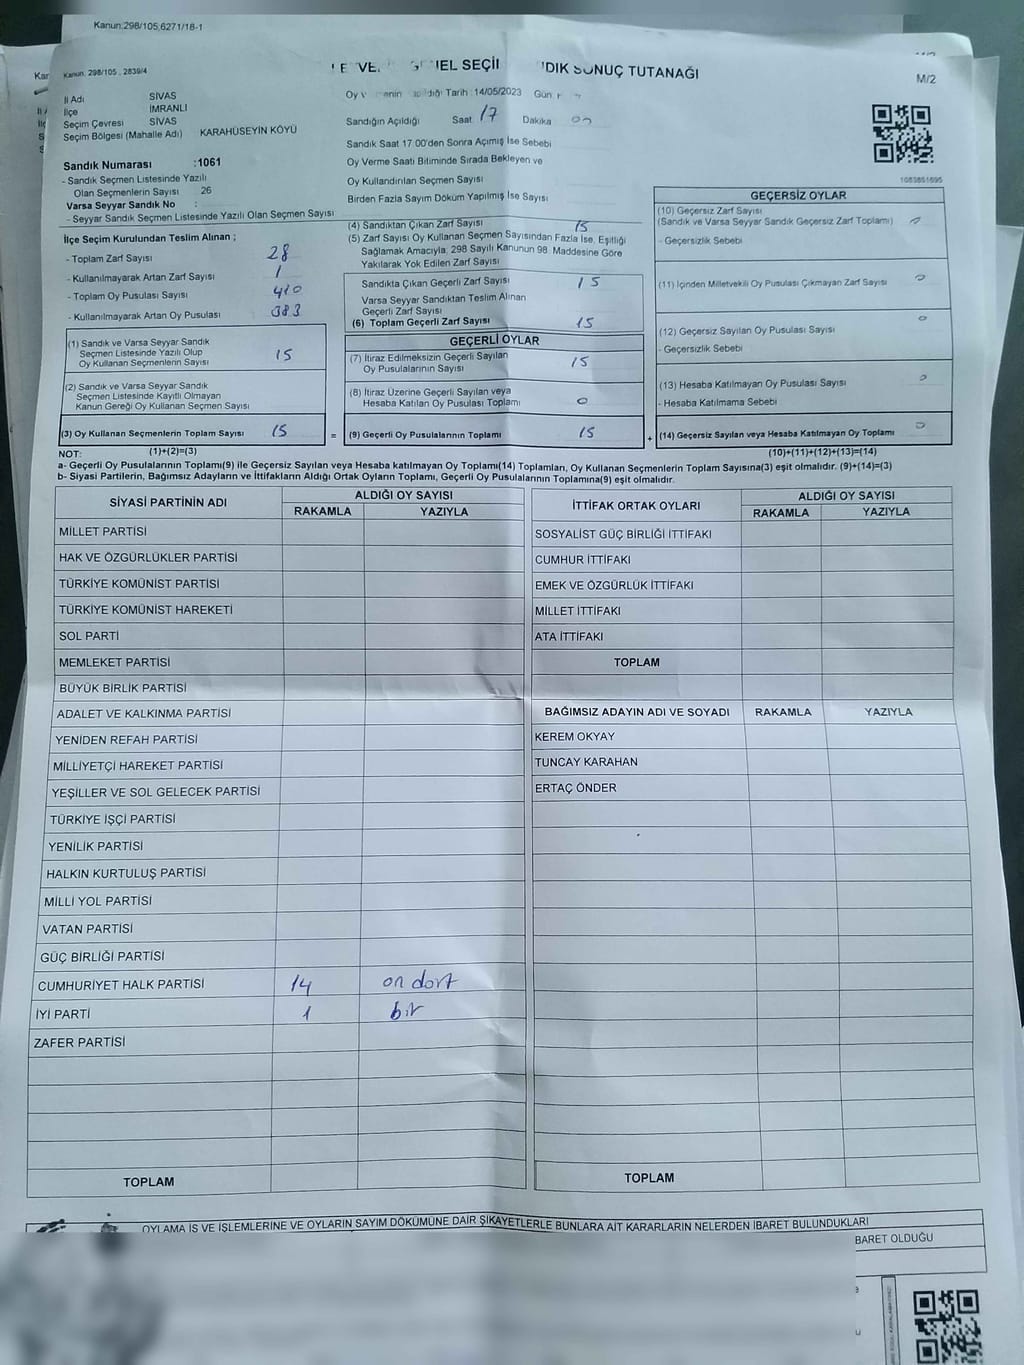 Kanun:298/105,6271/18-1
Kanun: 298/105 , 2839/4
NEL SEÇİ
DIK SONUÇ TUTANAĞI
M/2
İl Adı SİVAS
İlçe İMRANLI
Seçim Çevresi SİVAS
Seçim Bölgesi (Mahalle Adı) KARAHÜSEYİN KÖYÜ
Sandık Numarası :1061
- Sandık Seçmen Listesinde Yazılı
Olan Seçmenlerin Sayısı 26
Varsa Seyyar Sandık No :
- Seyyar Sandık Seçmen Listesinde Yazılı Olan Seçmen Sayısı
Tarih :14/05/2023 Gün
Sandığın Açıldığı Saat 17 Dakika
Sandık Saat 17.00'den Sonra Açımış İse Sebebi
Oy Verme Saati Bitiminde Sırada Bekleyen ve
Oy Kullandırılan Seçmen Sayısı
Birden Fazla Sayım Döküm Yapılmış İse Sayısı
1083851695
İlçe Seçim Kurulundan Teslim Alınan ;
- Toplam Zarf Sayısı 28
- Kullanılmayarak Artan Zarf Sayısı 1
- Toplam Oy Pusulası Sayısı 410
- Kullanılmayarak Artan Oy Pusulası 383
(1) Sandık ve Varsa Seyyar Sandık
Seçmen Listesinde Yazılı Olup
Oy Kullanan Seçmenlerin Sayısı 15
(2) Sandık ve Varsa Seyyar Sandık
Seçmen Listesinde Kayıtlı Olmayan
Kanun Gereği Oy Kullanan Seçmen Sayısı
(3) Oy Kullanan Seçmenlerin Toplam Sayısı 15 =
(4) Sandıktan Çıkan Zarf Sayısı 15
(5) Zarf Sayısı Oy Kullanan Seçmen Sayısından Fazla İse, Eşitliği
Sağlamak Amacıyla; 298 Sayılı Kanunun 98. Maddesine Göre
Yakılarak Yok Edilen Zarf Sayısı
Sandıkta Çıkan Geçerli Zarf Sayısı 15
Varsa Seyyar Sandıktan Teslim Alınan
Geçerli Zarf Sayısı
(6) Toplam Geçerli Zarf Sayısı 15
GEÇERLİ OYLAR
(7) İtiraz Edilmeksizin Geçerli Sayılan
Oy Pusulalarının Sayısı 15
(8) İtiraz Üzerine Geçerli Sayılan veya
Hesaba Katılan Oy Pusulası Toplamı 0
(9) Geçerli Oy Pusulalarının Toplamı 15 +
GEÇERSİZ OYLAR
(10) Geçersiz Zarf Sayısı
(Sandık ve Varsa Seyyar Sandık Geçersiz Zarf Toplamı) 0
- Geçersizlik Sebebi
(11) İçinden Milletvekili Oy Pusulası Çıkmayan Zarf Sayısı 0
(12) Geçersiz Sayılan Oy Pusulası Sayısı 0
- Geçersizlik Sebebi
(13) Hesaba Katılmayan Oy Pusulası Sayısı 0
- Hesaba Katılmama Sebebi
(14) Geçersiz Sayılan veya Hesaba Katılmayan Oy Toplamı 0
NOT: (1)+(2)=(3) (10)+(11)+(12)+(13)=(14)
a- Geçerli Oy Pusulalarının Toplamı(9) ile Geçersiz Sayılan veya Hesaba katılmayan Oy Toplamı(14) Toplamları, Oy Kullanan Seçmenlerin Toplam Sayısına(3) eşit olmalıdır. (9)+(14)=(3)
b- Siyasi Partilerin, Bağımsız Adayların ve İttifakların Aldığı Ortak Oyların Toplamı, Geçerli Oy Pusulalarının Toplamına(9) eşit olmalıdır.
SİYASİ PARTİNİN ADI ALDIĞI OY SAYISI
RAKAMLA YAZIYLA
MİLLET PARTİSİ
HAK VE ÖZGÜRLÜKLER PARTİSİ
TÜRKİYE KOMÜNİST PARTİSİ
TÜRKİYE KOMÜNİST HAREKETİ
SOL PARTİ
MEMLEKET PARTİSİ
BÜYÜK BİRLİK PARTİSİ
ADALET VE KALKINMA PARTİSİ
YENİDEN REFAH PARTİSİ
MİLLİYETÇİ HAREKET PARTİSİ
YEŞİLLER VE SOL GELECEK PARTİSİ
TÜRKİYE İŞÇİ PARTİSİ
YENİLİK PARTİSİ
HALKIN KURTULUŞ PARTİSİ
MİLLİ YOL PARTİSİ
VATAN PARTİSİ
GÜÇ BİRLİĞİ PARTİSİ
CUMHURİYET HALK PARTİSİ 14 on dort
İYİ PARTİ 1 bir
ZAFER PARTİSİ
TOPLAM
İTTİFAK ORTAK OYLARI ALDIĞI OY SAYISI
RAKAMLA YAZIYLA
SOSYALİST GÜÇ BİRLİĞİ İTTİFAKI
CUMHUR İTTİFAKI
EMEK VE ÖZGÜRLÜK İTTİFAKI
MİLLET İTTİFAKI
ATA İTTİFAKI
TOPLAM
BAĞIMSIZ ADAYIN ADI VE SOYADI RAKAMLA YAZIYLA
KEREM OKYAY
TUNCAY KARAHAN
ERTAÇ ÖNDER
TOPLAM
OYLAMA İŞ VE İŞLEMLERİNE VE OYLARIN SAYIM DÖKÜMÜNE DAİR ŞİKAYETLERLE BUNLARA AİT KARARLARIN NELERDEN İBARET BULUNDUKLARI
BARET OLDUĞU